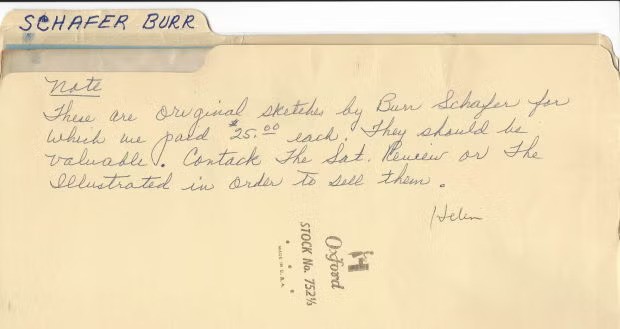 SCHAFER BURR
Note
These are original sketches by Burr Schafer for
which we paid $25.00 each. They should be
valuable. Contack The Sat. Review or The
Illustrated in order to sell them.
Helen
Oxford
STOCK No. 752⅓
MADE IN U.S.A.